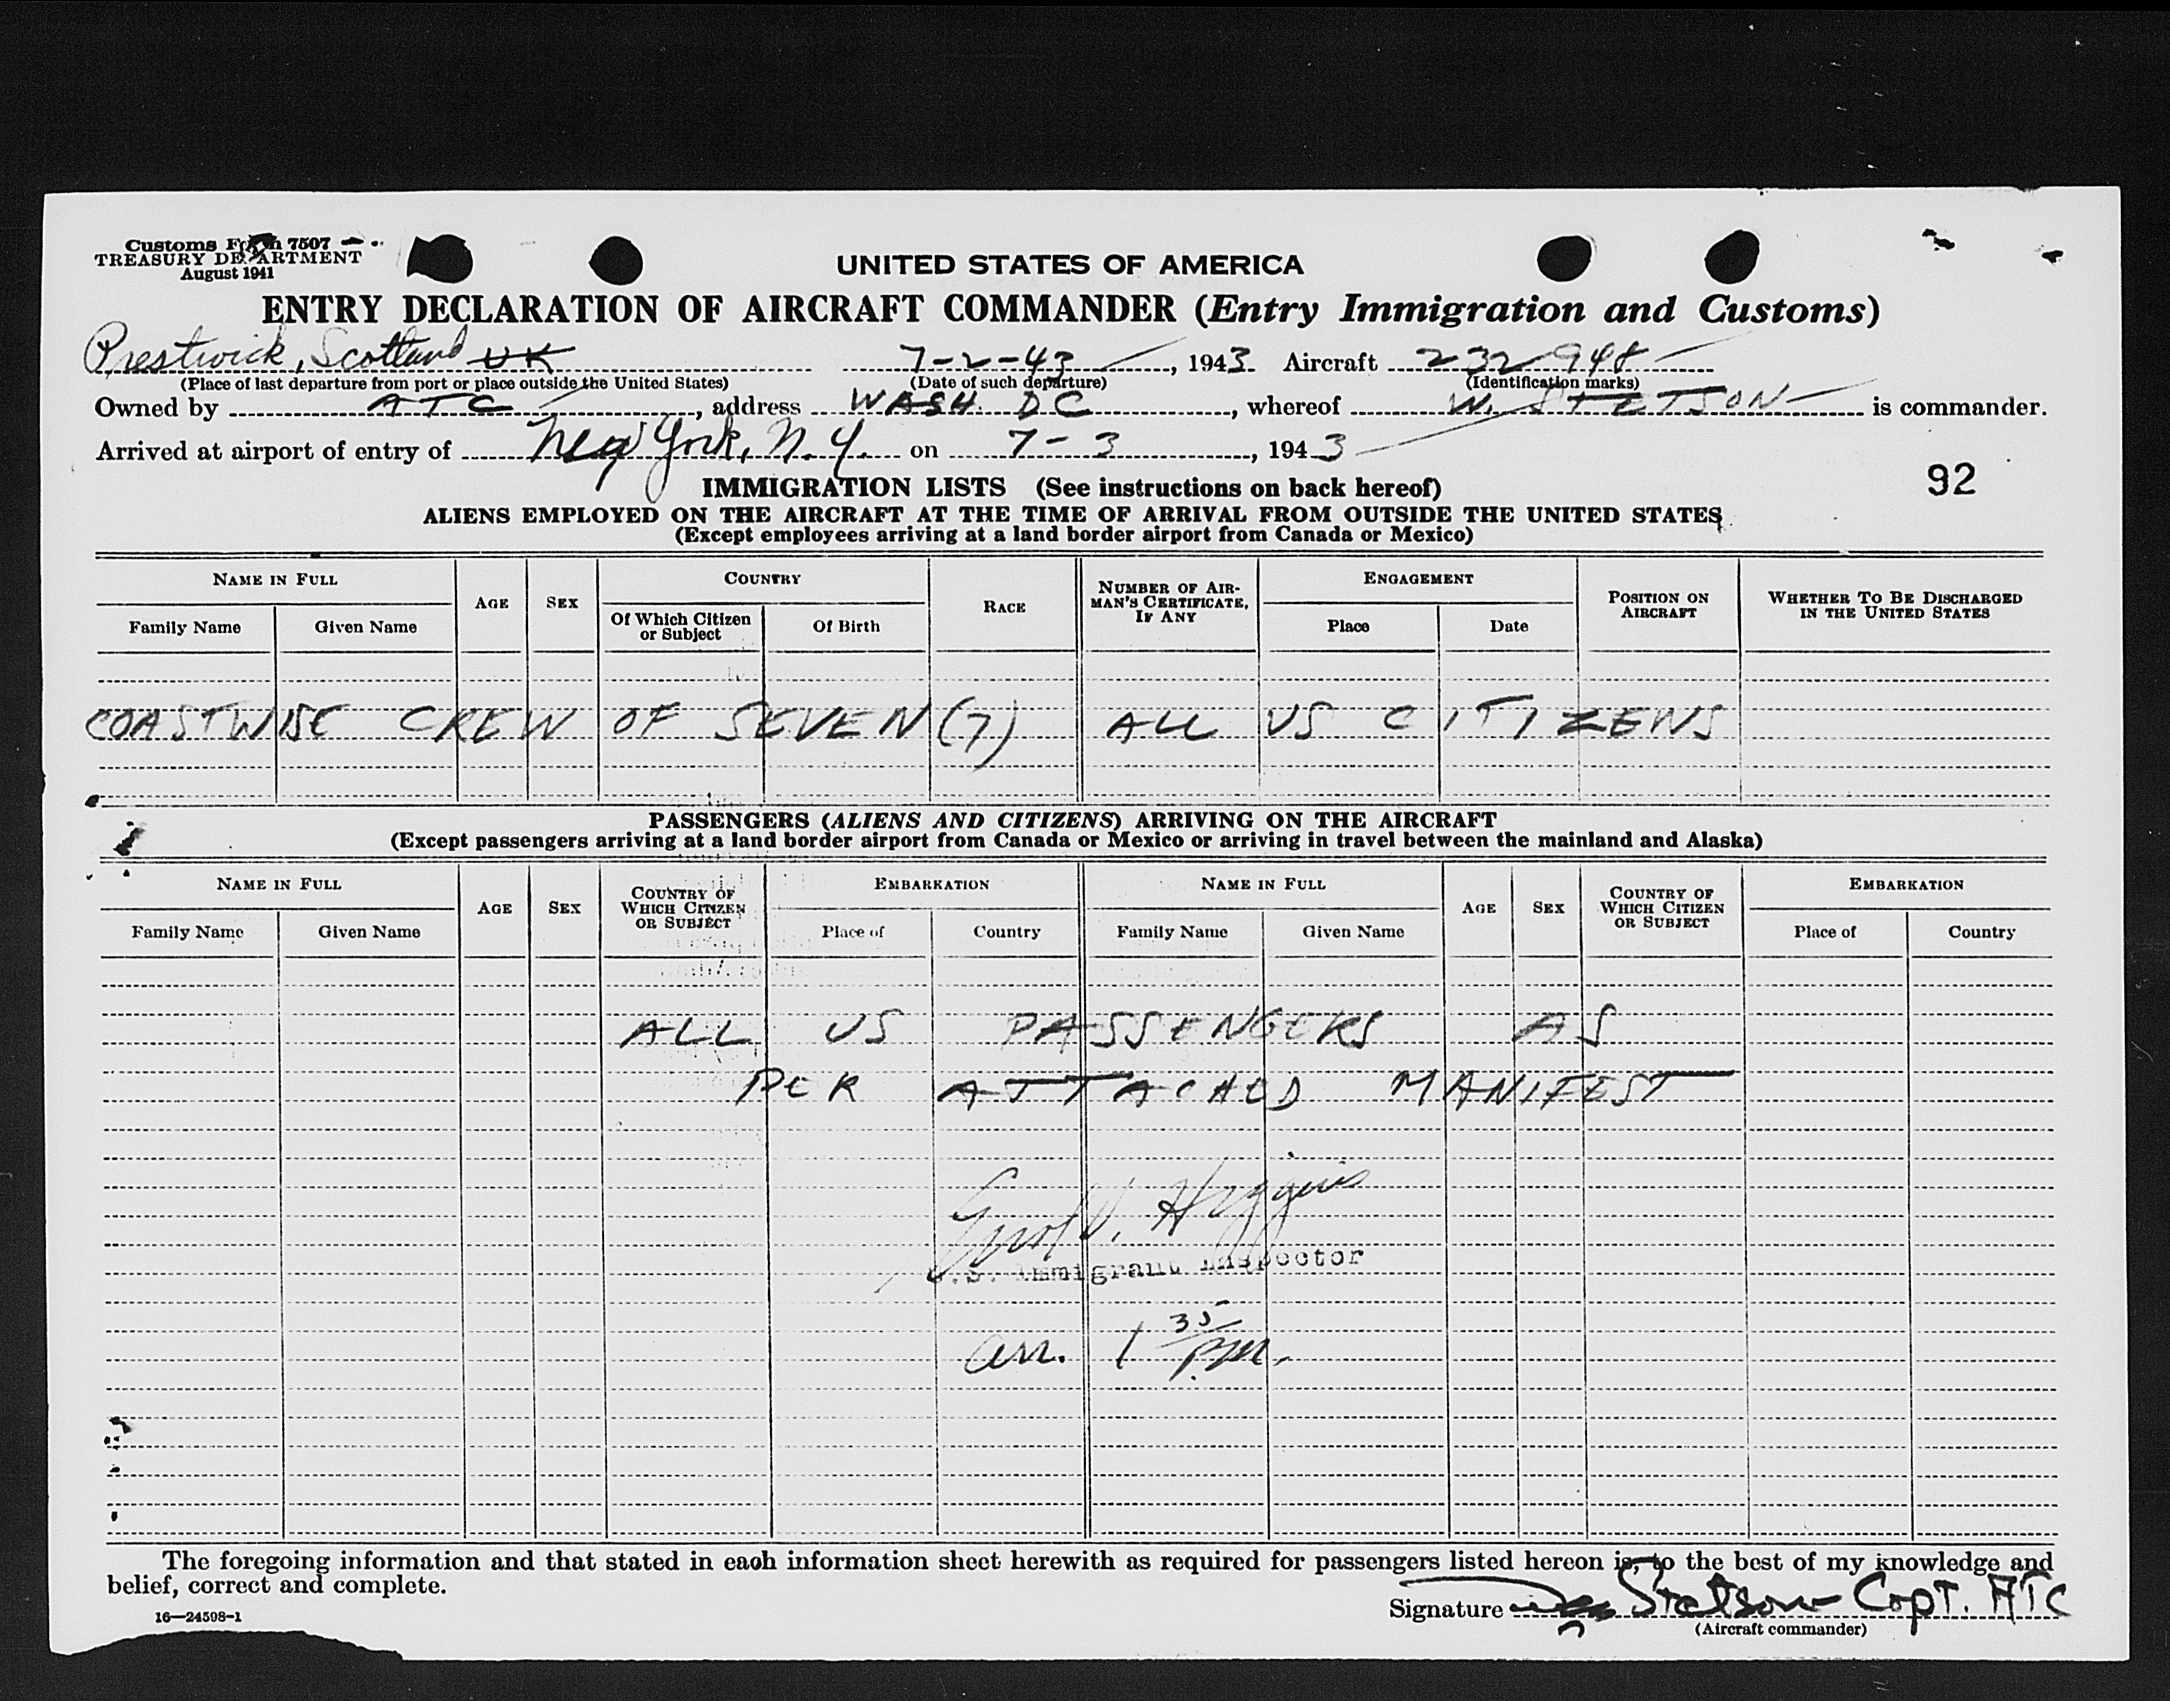 Customs Form 7507
TREASURY DEPARTMENT
August 1941
UNITED STATES OF AMERICA
ENTRY DECLARATION OF AIRCRAFT COMMANDER (Entry Immigration and Customs)
Prestwick, Scotland UK 7-2-43, 1943 Aircraft 232948
(Place of last departure from port or place outside the United States) (Date of such departure) (Identification marks)
Owned by ATC, address WASH. DC, whereof W. STETSON is commander.
Arrived at airport of entry of New York, N.Y. on 7-3, 1943
92
IMMIGRATION LISTS (See instructions on back hereof)
ALIENS EMPLOYED ON THE AIRCRAFT AT THE TIME OF ARRIVAL FROM OUTSIDE THE UNITED STATES
(Except employees arriving at a land border airport from Canada or Mexico)
NAME IN FULL AGE SEX COUNTRY RACE NUMBER OF AIRMAN'S CERTIFICATE, IF ANY ENGAGEMENT POSITION ON AIRCRAFT WHETHER TO BE DISCHARGED IN THE UNITED STATES
Family Name Given Name Of Which Citizen or Subject Of Birth Place Date
COASTWISE CREW OF SEVEN (7) ALL US CITIZENS
PASSENGERS (ALIENS AND CITIZENS) ARRIVING ON THE AIRCRAFT
(Except passengers arriving at a land border airport from Canada or Mexico or arriving in travel between the mainland and Alaska)
NAME IN FULL AGE SEX COUNTRY OF WHICH CITIZEN OR SUBJECT EMBARKATION NAME IN FULL AGE SEX COUNTRY OF WHICH CITIZEN OR SUBJECT EMBARKATION
Family Name Given Name Place of Country Family Name Given Name Place of Country
ALL US PASSENGERS AS
PER ATTACHED MANIFEST
Higgins
U.S. Immigrant Inspector
arr. 1 35 pm.
The foregoing information and that stated in each information sheet herewith as required for passengers listed hereon is, to the best of my knowledge and
belief, correct and complete.
16—24598-1
Signature Stetson Capt. ATC
(Aircraft commander)